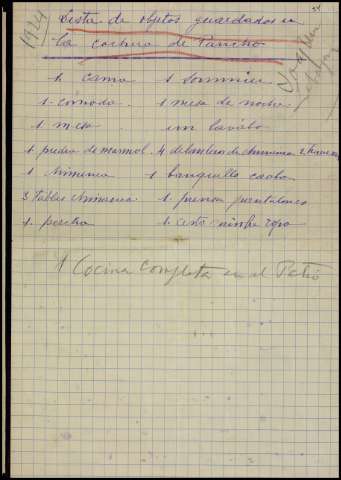 1924
Lista de objetos guardados en
La cochera de Pancho
1 cama 1 sommier
1 cómoda 1 mesa de noche
1 mesa un lavabo
1 piedra de marmol 4 de chimenea
1 chimenea 1 banquillo caoba
3 tablas chimenea 1 prensa pantalones
1 percha 1 cesto ropa
1 Cocina completa en el Patio